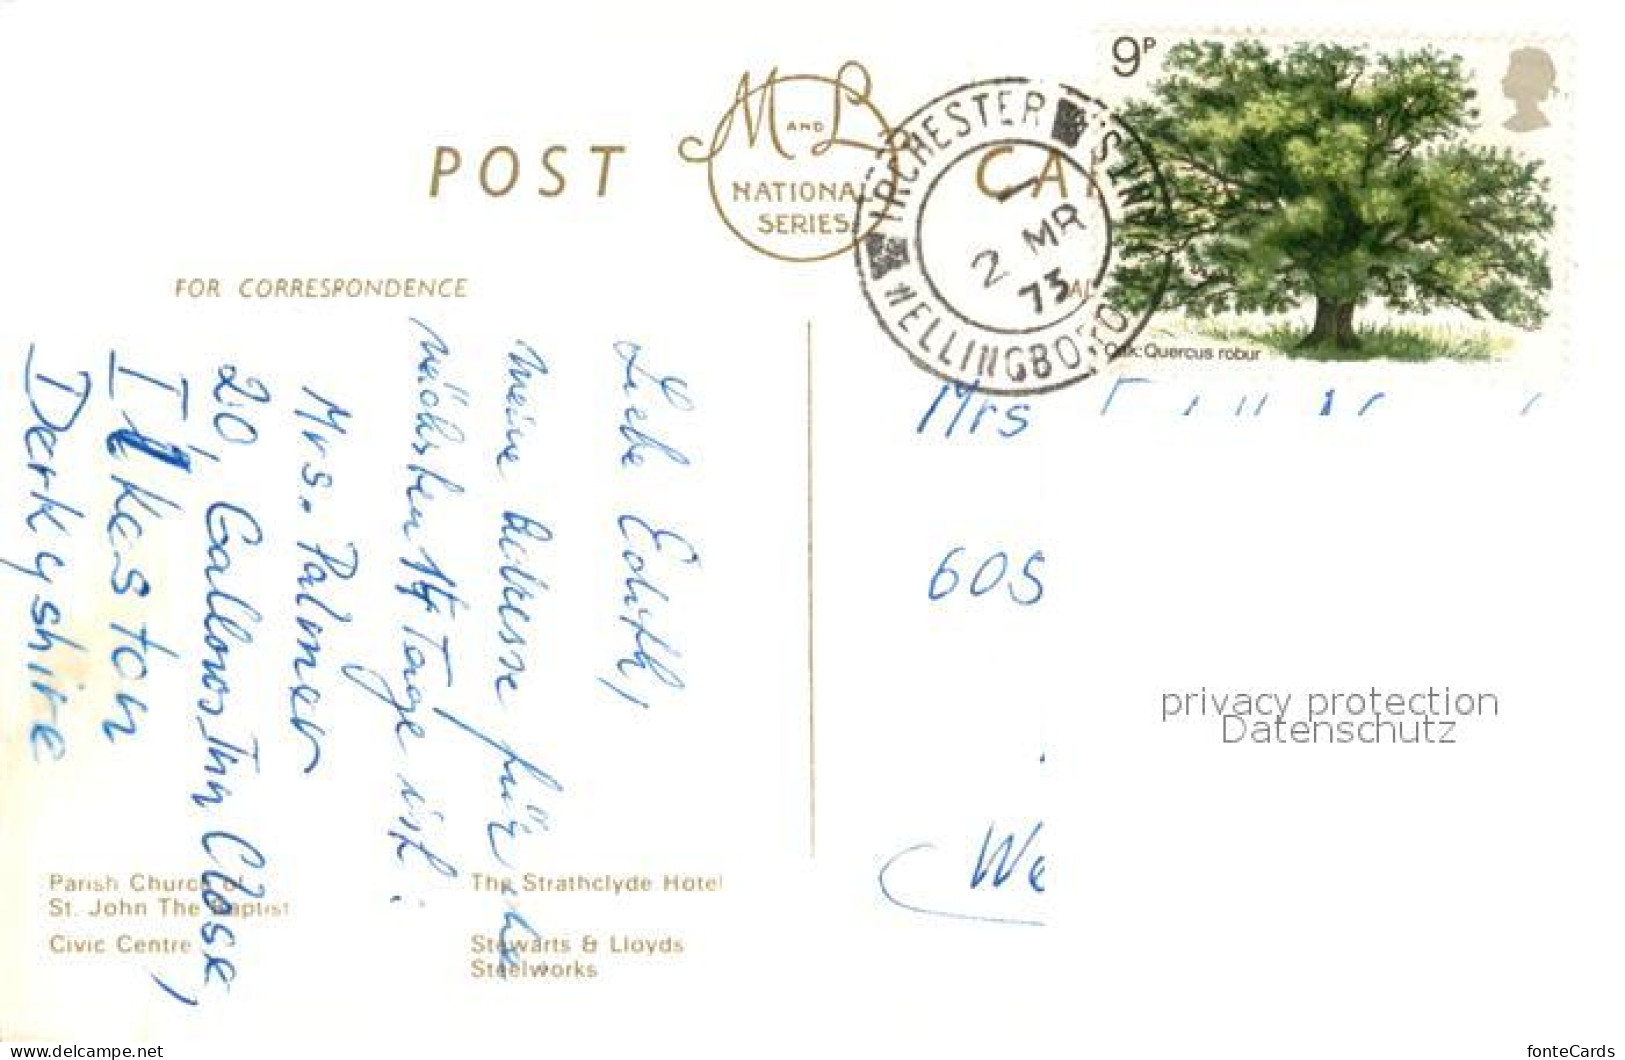 POST CA
M AND L
NATIONAL
SERIES
IRCHESTER
WELLINGBORO
2 MR
73
9P
Oak: Quercus robur
FOR CORRESPONDENCE
Liebe Edith,
meine Adresse für die
nächsten 14 Tage ist:
Mrs. Palmer
20, Gallows Inn Close,
Ilkeston
Derkeyshire
Mrs
60S
We
Parish Church of
St. John The Baptist
Civic Centre
The Strathclyde Hotel
Stewarts & Lloyds
Steelworks
privacy protection
Datenschutz
www.delcampe.net/tine041
fonteCards